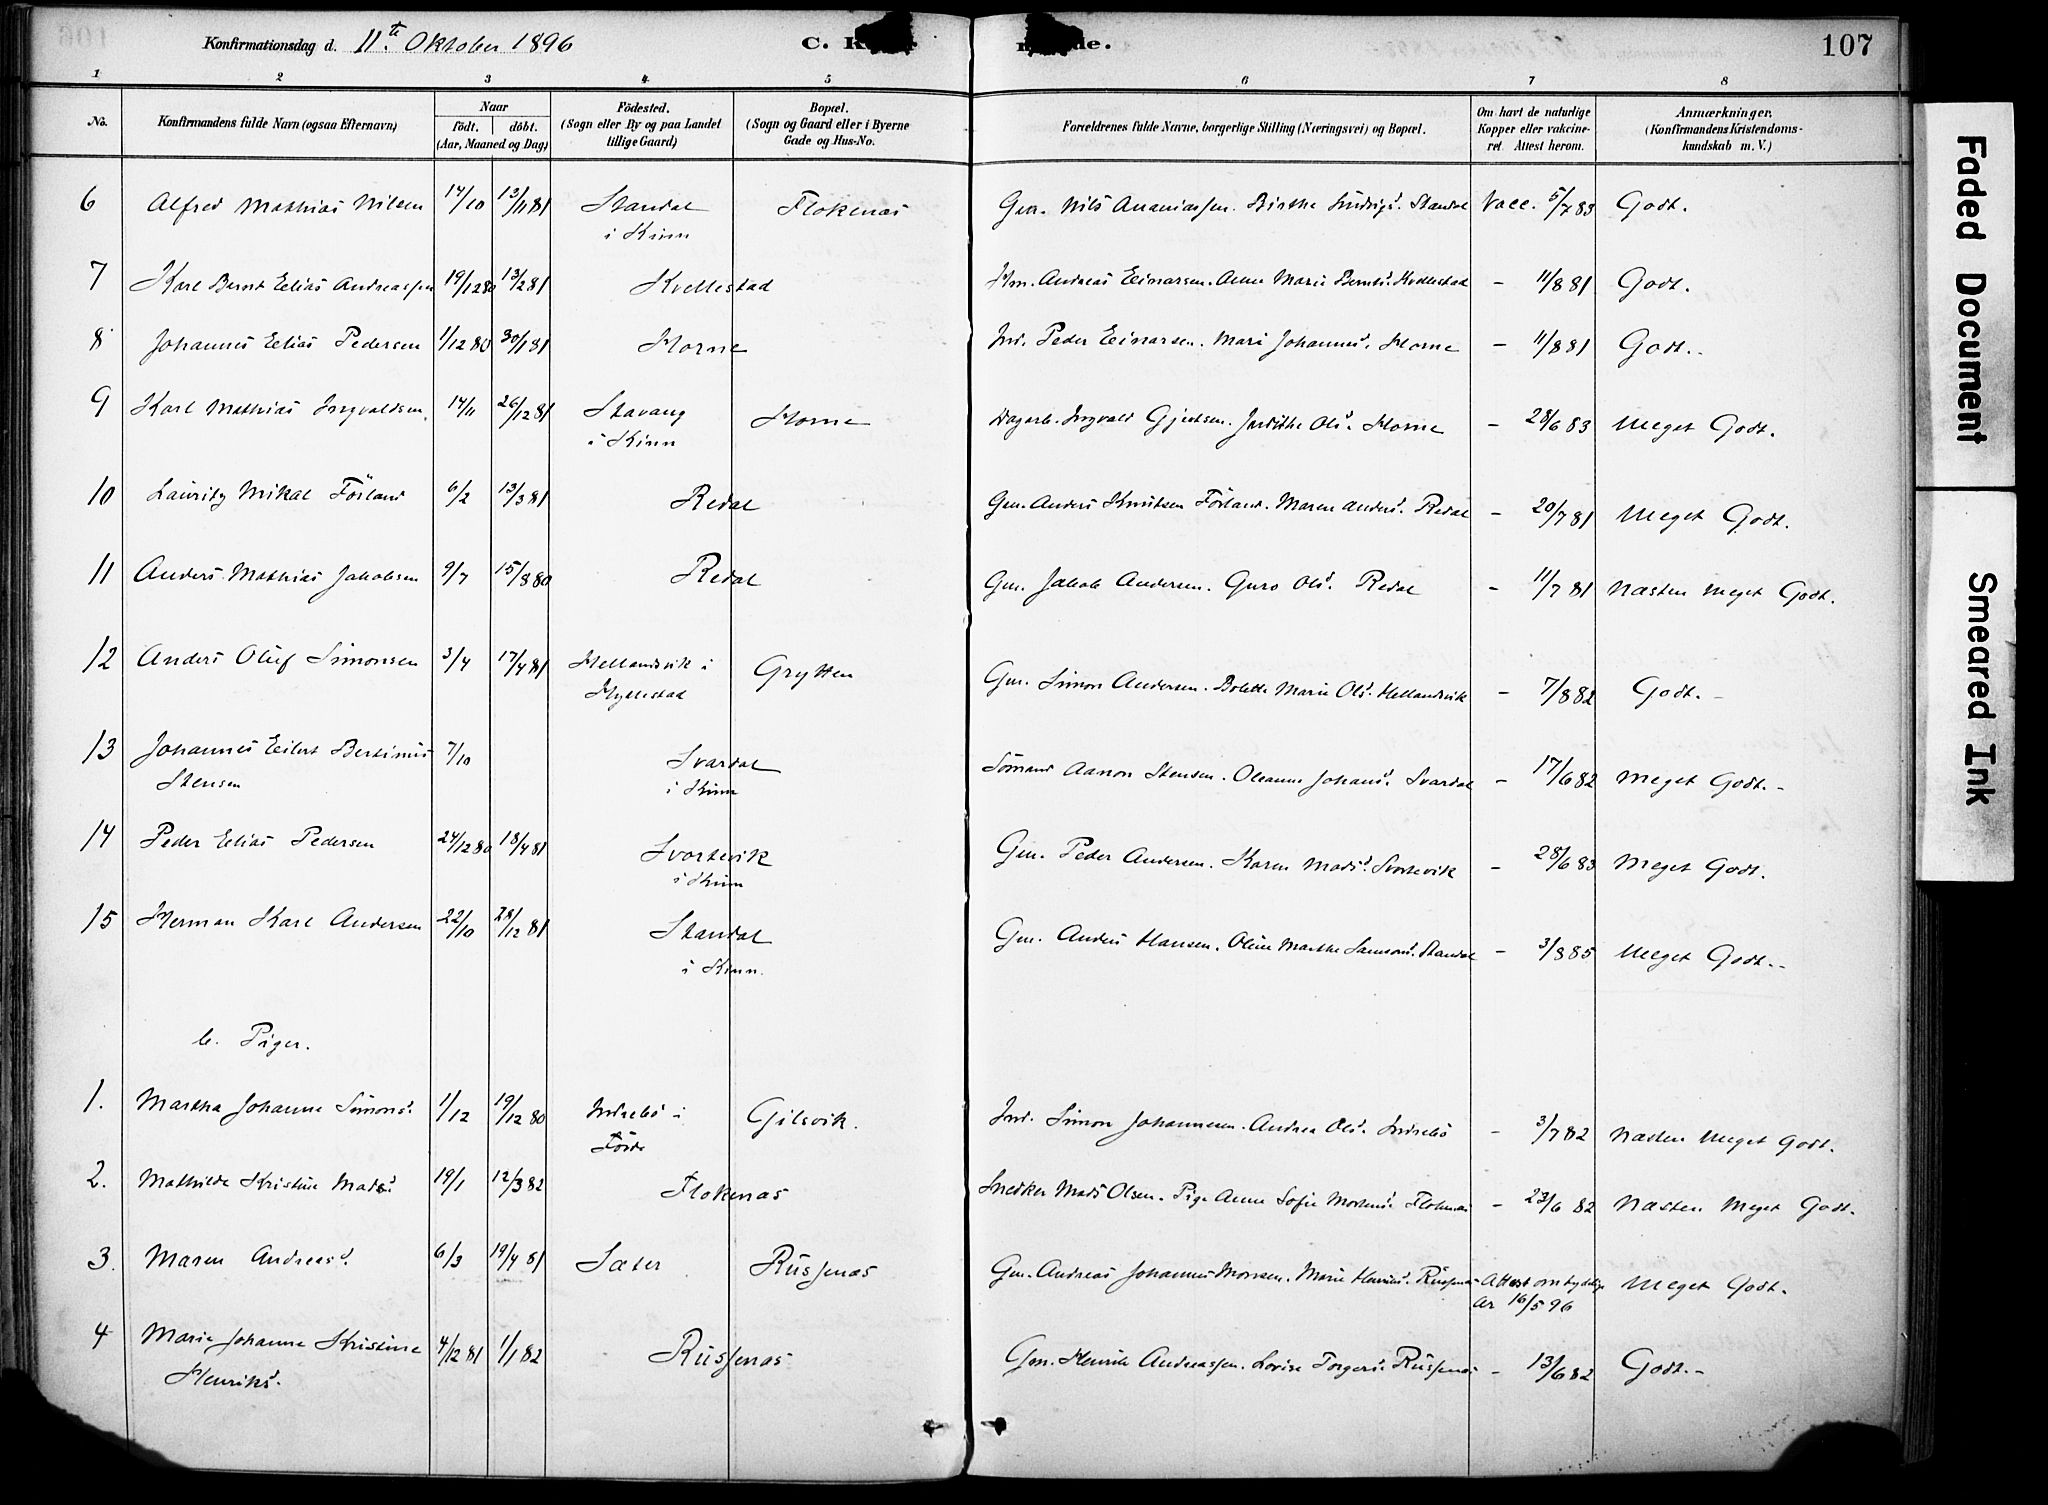 Konfirmationsdag d. 11te Oktober 1896 C. K de. 107
1 2 3 4 5 6 7 8
No. Konfirmandens fulde Navn (ogsaa Efternavn) Naar födt. döbt. (Aar, Maaned og Dag) Födested. (Sogn eller By og paa Landet tillige Gaard) Bopæl. (Sogn og Gaard eller i Byerne Gade og Hus-No. Forældrenes fulde Navne, borgerlige Stilling (Næringsvei) og Bopæl. Om havt de naturlige Kopper eller vakcineret. Attest herom. Anmærkninger. (Konfirmandens Kristendomskundskab m. V.)
6 Alfred Mathias Nilsen 14/10 13/11 81 Standal i Kinn Flokenæs Gm. Nils Ananiassen. Birthe Standal Vacc. 5/7 83 Godt.
7 Karl Bernt Elias Andreassen 19/12 80 13/2 81 Kvellestad Hm. Andreas Einarsen. Anne Marie Bernts. Kvellestad - 11/8 81 Godt.
8 Johannes Elias Pedersen 1/12 80 30/1 81 Horne Ind. Peder Einarsen. Mari Johannes. Horne - 11/8 81 Godt.
9 Karl Mathias Ingvaldsen 14/11 26/12 81 Stavang i Kinn Horne Dagarb. Ingvald Gjertsen. Ols. Horne - 28/6 83 Meget Godt.
10 Lauritz Mikal Förland 6/2 13/3 81 Redal Gm. Anders Knutsen Förland. Maren Anders. Redal - 20/7 81 Meget Godt.
11 Anders Mathias Jakobsen 9/7 15/8 80 Redal Gm. Jakob Andersen. Guro Ols. Redal - 11/7 81 Næsten Meget Godt.
12 Anders Oluf Simonsen 3/4 17/4 81 Hellandsvik i Hyllestad Grytten Gm. Simon Andersen. Bolette Marie Ols. Hellandsvik - 7/8 82 Godt. -
13 Johannes Eilert Bertinus Stensen 7/10 Svardal i Kinn Sömand Aanon Stensen. Oleanne Johans. Svardal - 17/6 82 Meget Godt. -
14 Peder Elias Pedersen 24/12 80 18/4 81 Svortevik i Kinn Gm. Peder Andersen. Karen Mads. Svortevik - 28/6 83 Meget Godt.
15 Herman Karl Andersen 22/10 28/12 81 Standal i Kinn. Gm. Anders Hansen. Oline Marthe Samsons. Standal - 3/8 85 Meget Godt. -
b. Piger.
1. Martha Johanne Simons. 1/12 19/12 80 Indrebö i Förde Gilsvik. Ind. Simon Johannesen. Andrea Ols. Indrebö - 3/7 82 Næsten Meget Godt.
2. Mathilde Kristine Mads. 19/1 12/3 82 Flokenæs Snedker Mads Olsen. Pige Anne Sofie Mortens. Flokenæs - 23/6 82 Næsten Meget Godt.
3. Maren Andreas. 6/3 19/4 81 Sæter Russenæs Gm. Andreas Johannes Monsen. Marie Henriks. Russenæs Attest om tydelige Ar 16/5 96 Meget Godt.
4 Marie Johanne Kristine Henriks. 4/12 81 1/1 82 Russenæs Gm. Henrik Andreassen. Lovise Torgers. Russenæs - 13/6 82 Godt. -
Faded Document
Smeared Ink